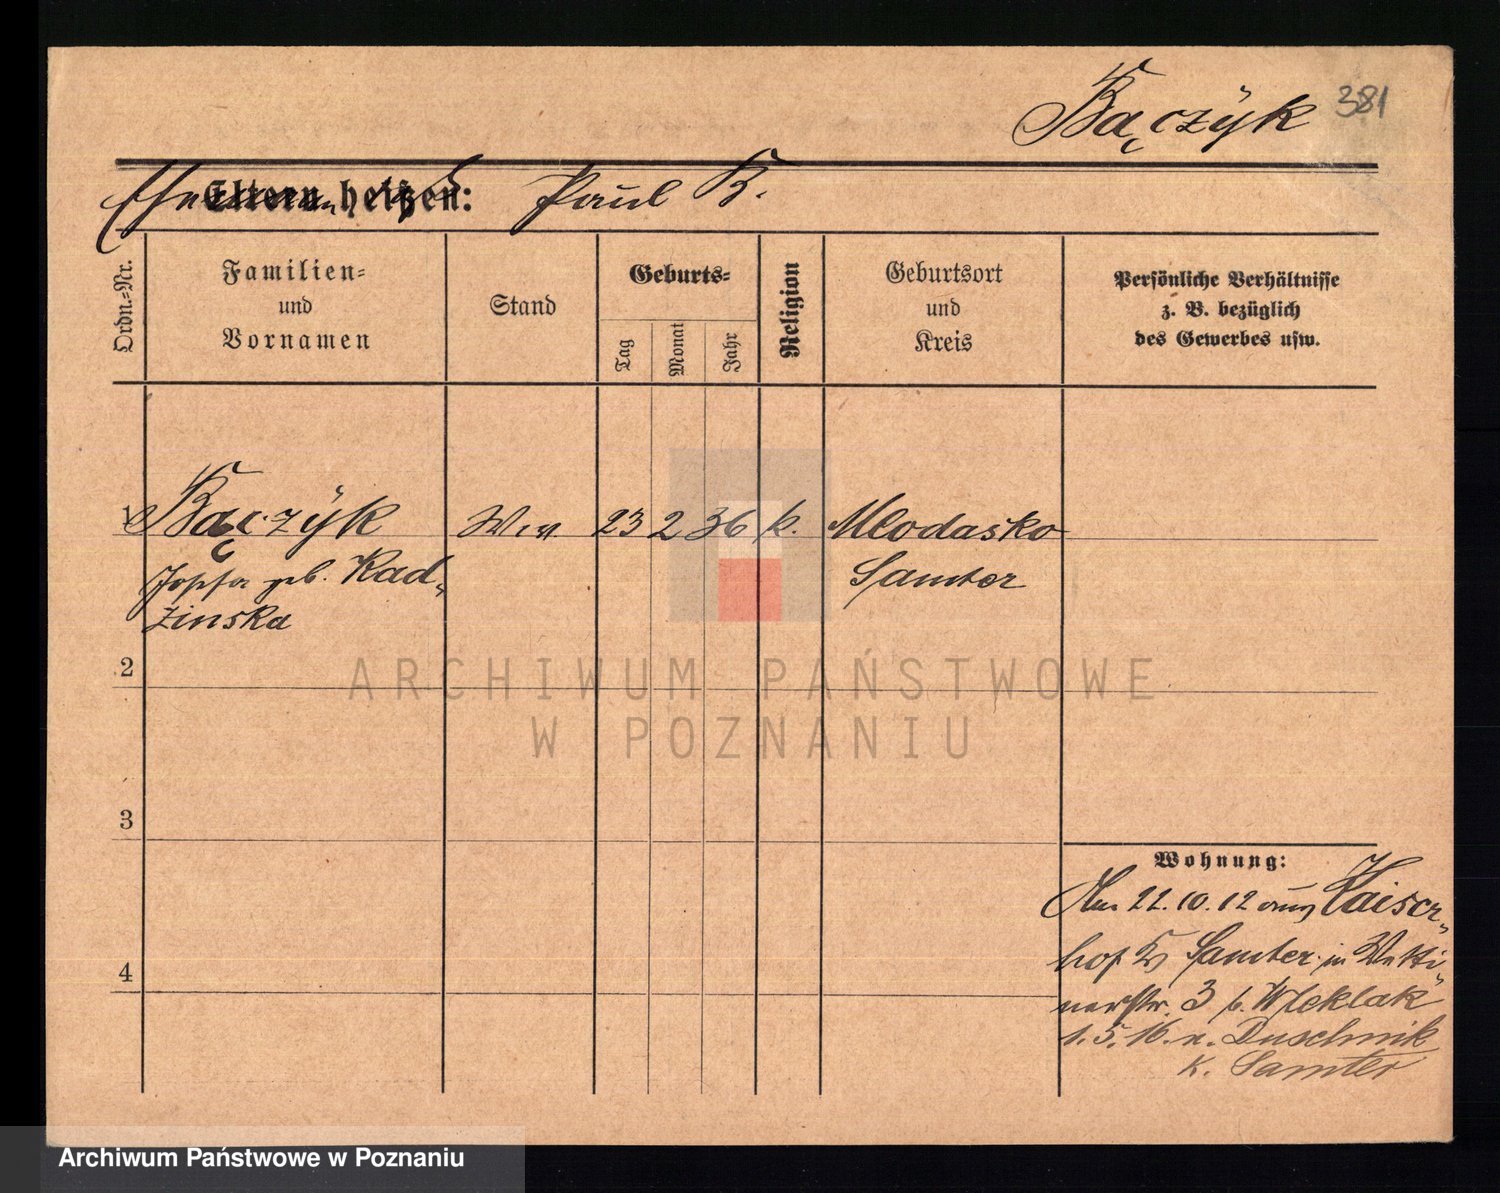 Bączyk 381
Eltern heißen: Paul B.
Ordn.-Nr.
Familien- und Vornamen
Stand
Geburts-
Tag
Monat
Jahr
Religion
Geburtsort und Kreis
Persönliche Verhältnisse z. B. bezüglich des Gewerbes usw.
1 Bączyk Ww. 23 2 36 k. Mlodasko
Josefa geb. Rad- Samter
zinska
2
3
4
Wohnung:
Am 22.10.12 aus Kaiser-
hof Kr Samter in Wetti-
nerstr. 3 b. Wleklak
1.5.16. n. Duschnik
K. Samter
ARCHIWUM PAŃSTWOWE
W POZNANIU
Archiwum Państwowe w Poznaniu